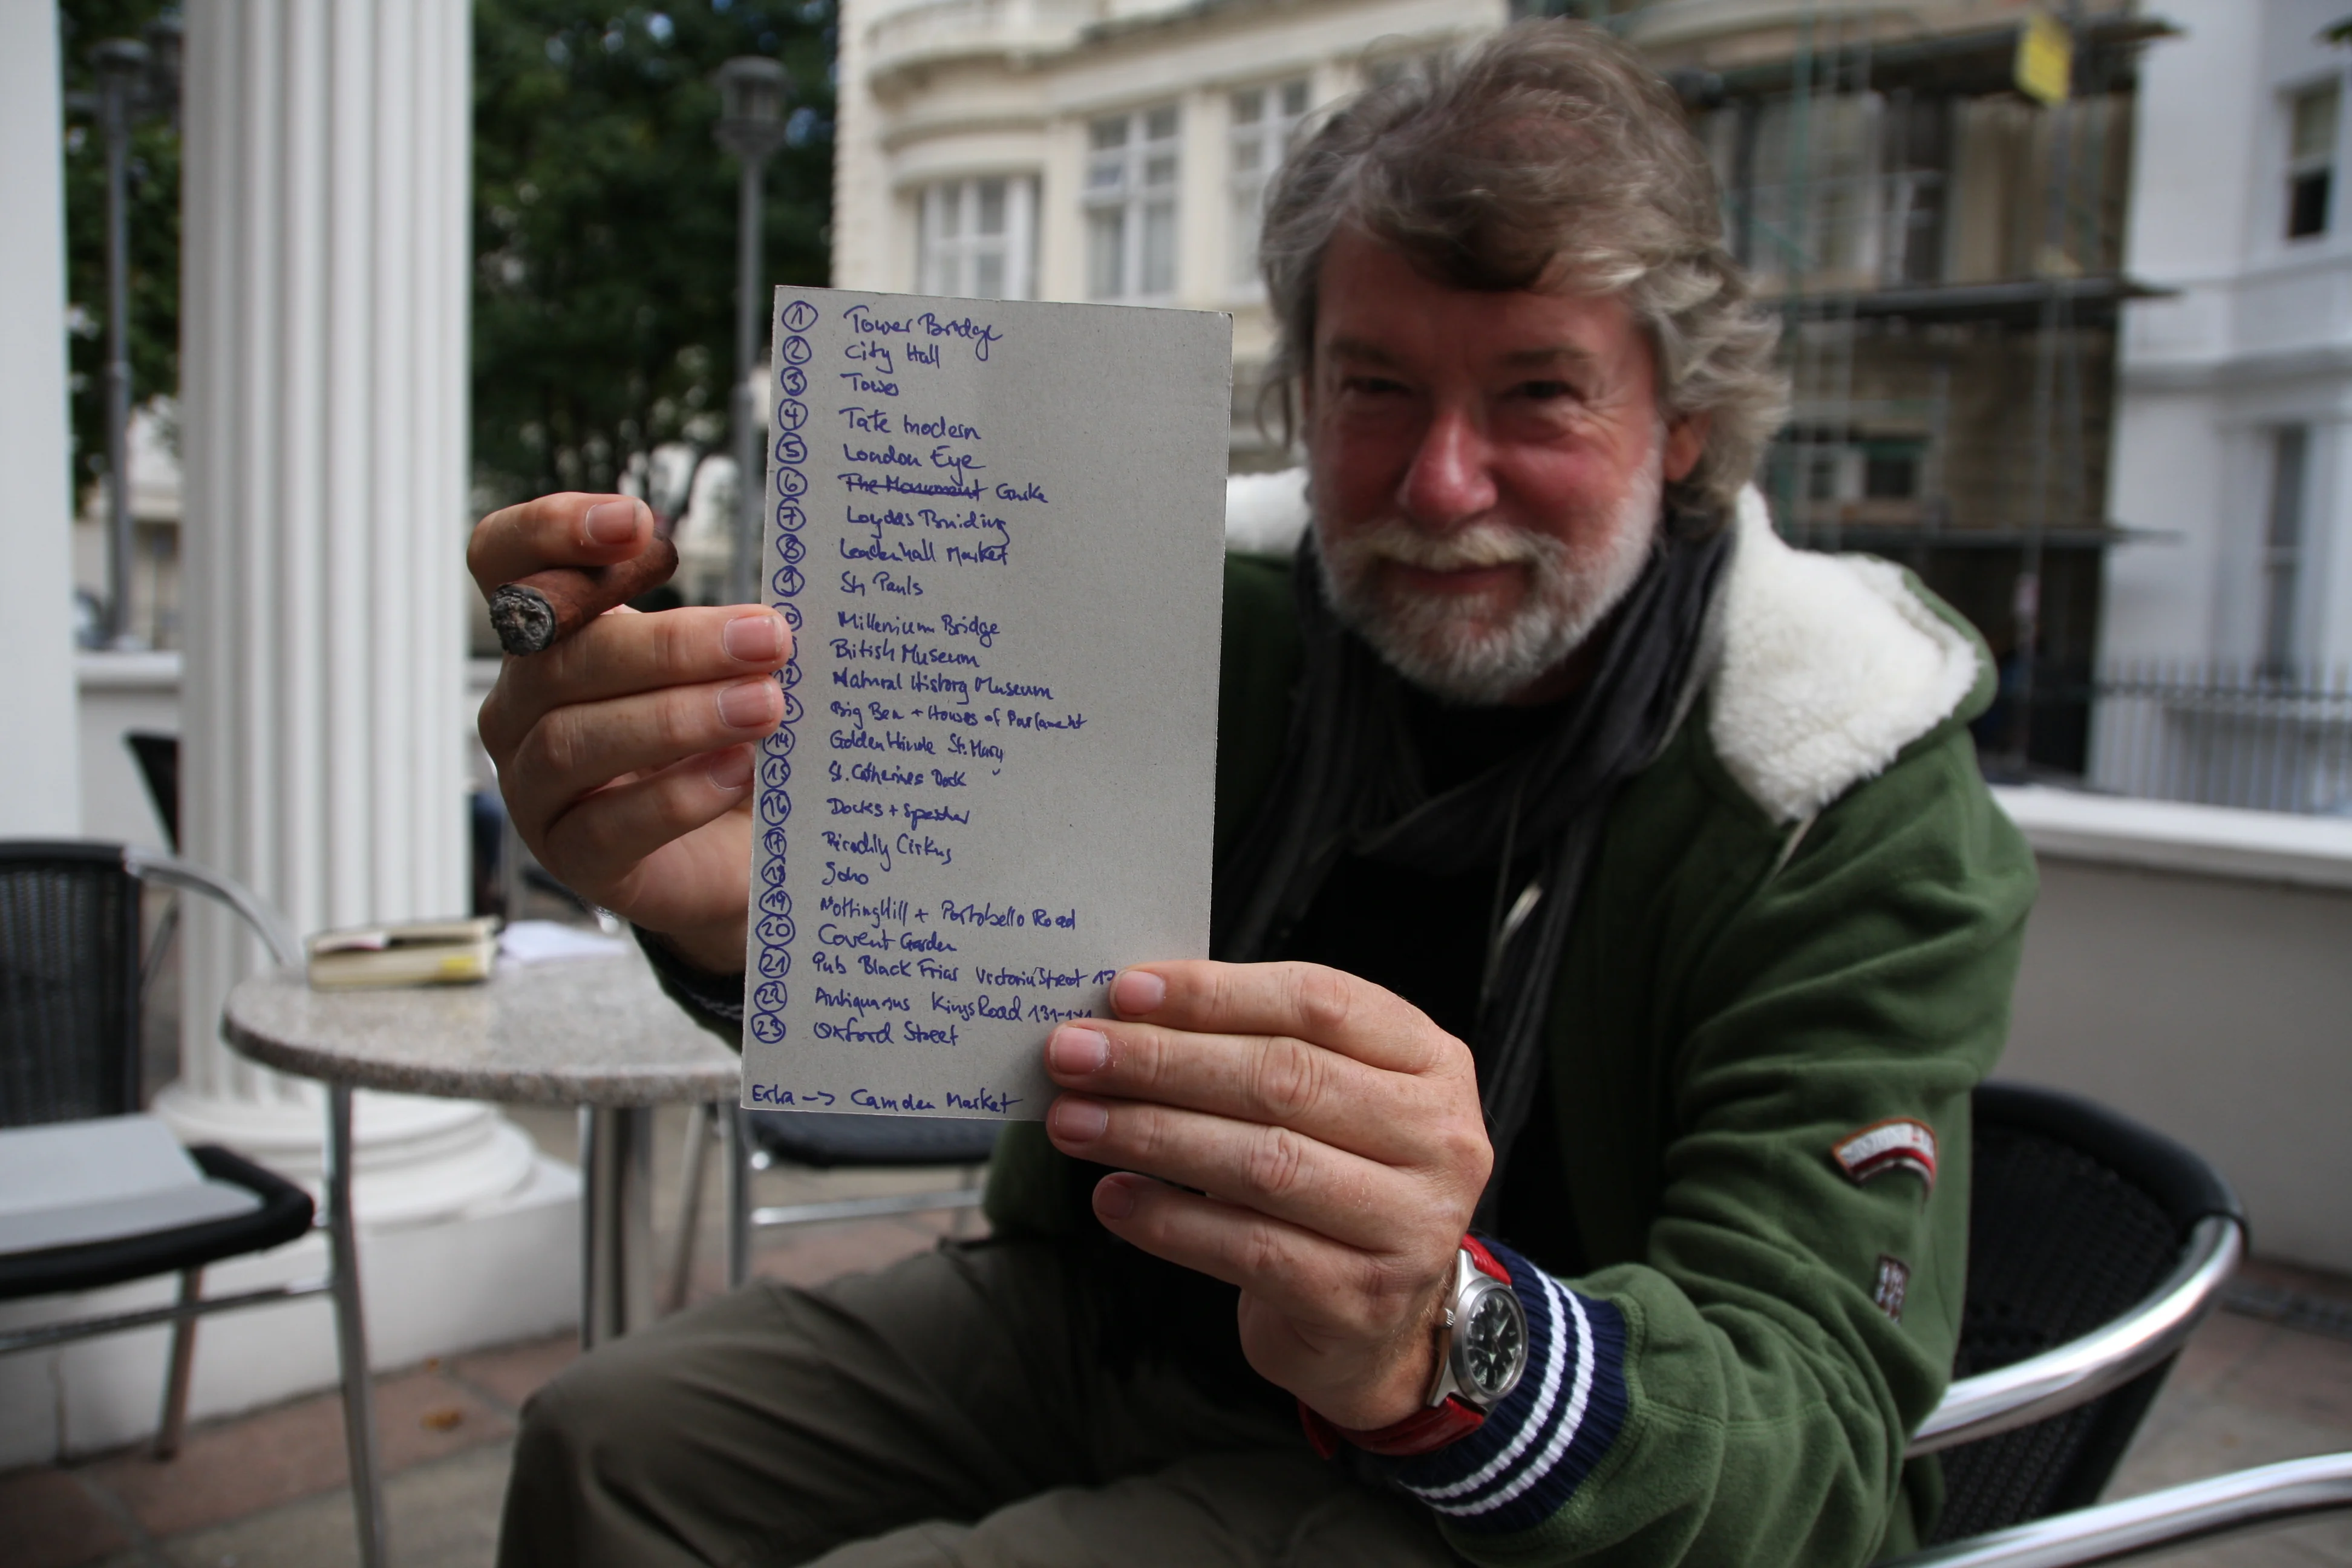 1 Tower Bridge
2 City Hall
3 Tower
4 Tate modern
5 London Eye
6 The Monument Gurke
7 Loydds Building
8 Leadenhall Market
9 St. Pauls
0 Millenium Bridge
British Museum
12 Natural History Museum
Big Ben + Houses of Parlament
14 Golden Hinde St. Mary
15 St. Catherines Dock
16 Docks + Speicher
17 Picadilly Cirkus
18 Soho
19 Notting Hill + Portobello Road
20 Covent Garden
21 Pub Black Friar Victoria Street 17
22 Antiquarius Kings Road 131-141
23 Oxford Street
Extra -> Camden Market